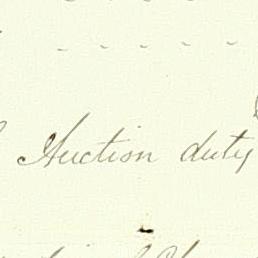 Auction duty